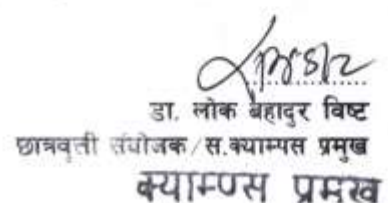 डा. लोक बहादुर विष्ट
छात्रवृती संयोजक/स.क्याम्पस प्रमुख
क्याम्पस प्रमुख